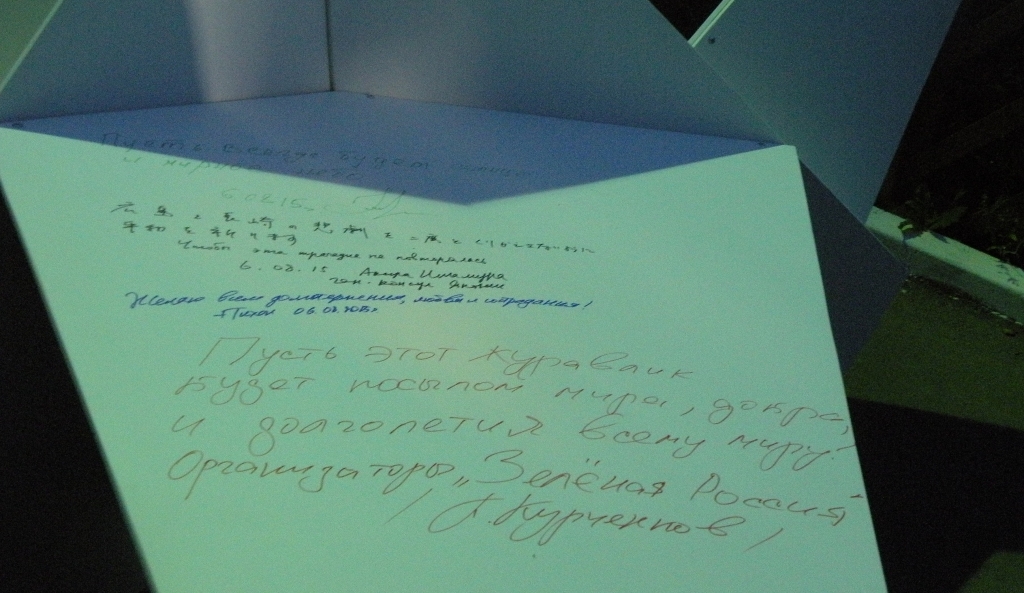 Пусть всегда будет
и мирное небо
広島と長崎の悲劇を二度とくりかえさない為に
平和を祈ります
Чтобы эта трагедия не повторялась
6.08.15 Акира Имамура
ген. консул Японии
Желаю всем долготерпения, любви и сострадания!
06.08.2015г
Пусть этот журавлик
будет посылом мира, добра,
и долголетия всему миру!
Организаторы „Зелёная Россия"
/ Курченков /